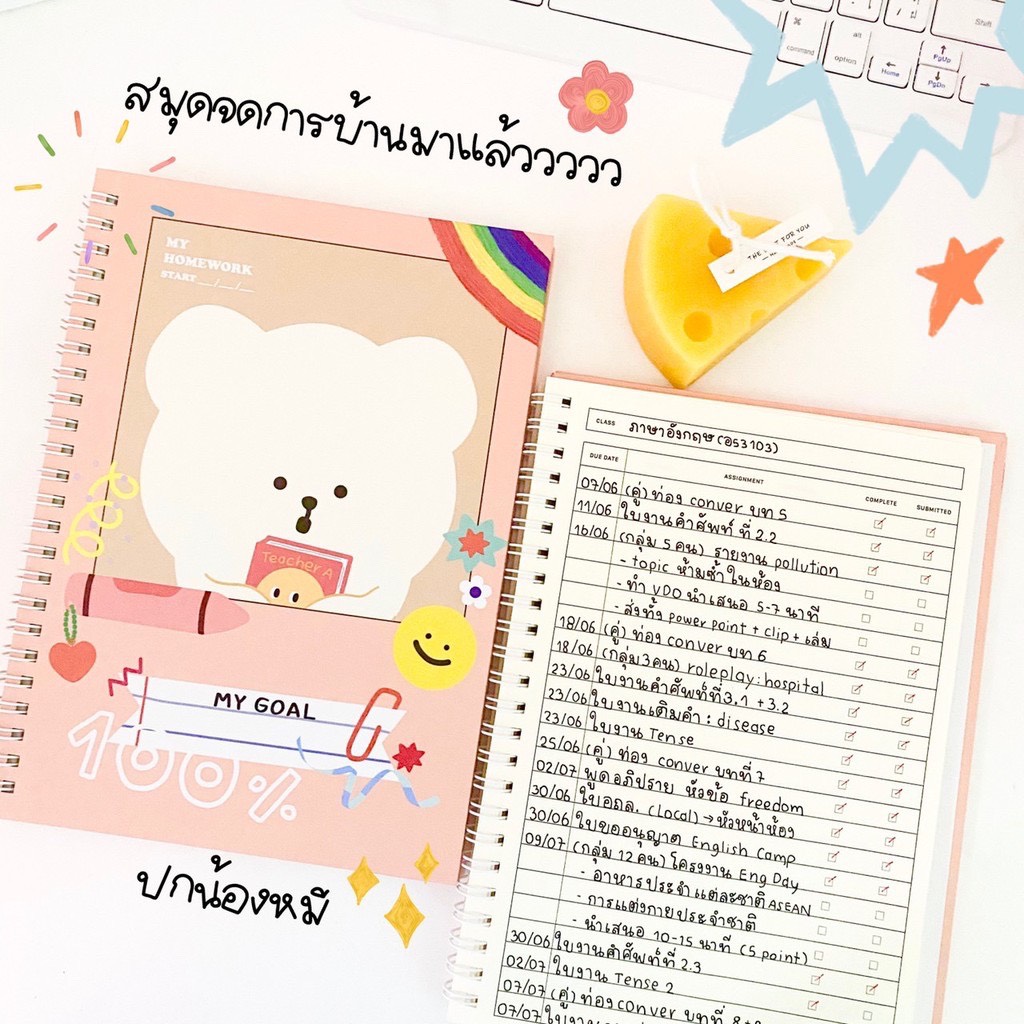 Shift
⌘
command
alt
option
←
Home
↑
PgUp
↓
PgDn
→
สมุดจดการบ้านมาแล้วววววว
MY
HOMEWORK
START__/__/__
THE FOR YOU
Teacher A
MY GOAL
100%
ปกน้องหมี
CLASS ภาษาอังกฤษ (อ53103)
DUE DATE ASSIGNMENT COMPLETE SUBMITTED
07/06 (คู่) ท่อง conver บท 5
11/06 ใบงานคำศัพท์ ที่ 2.2
16/06 (กลุ่ม 5 คน) รายงาน pollution
- topic ห้ามซ้ำในห้อง
- ทำ VDO นำเสนอ 5-7 นาที
- ส่งทั้ง power point + clip + เล่ม
18/06 (คู่) ท่อง conver บท 6
18/06 (กลุ่ม 3 คน) roleplay: hospital
23/06 ใบงานคำศัพท์ที่ 3.1 + 3.2
23/06 ใบงานเติมคำ : disease
23/06 ใบงาน Tense
25/06 (คู่) ท่อง conver บทที่ 7
02/07 พูดอภิปราย หัวข้อ freedom
30/06 ใบอถล. (local) → หัวหน้าห้อง
30/06 ใบขออนุญาต English Camp
09/07 (กลุ่ม 12 คน) โครงงาน Eng Day
- อาหารประจำแต่ละชาติ ASEAN
- การแต่งกายประจำชาติ
- นำเสนอ 10-15 นาที (5 point)
30/06 ใบงานคำศัพท์ที่ 2.3
02/07 ใบงาน Tense 2
07/07 (คู่) ท่อง conver บทที่
07/07